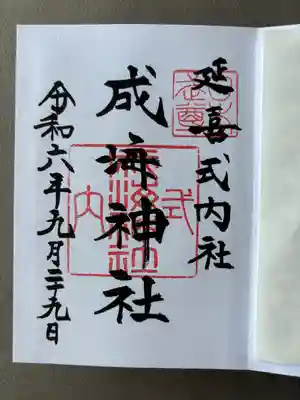 延喜式内社
成海神社
令和六年九月二十九日
式内
成海神社